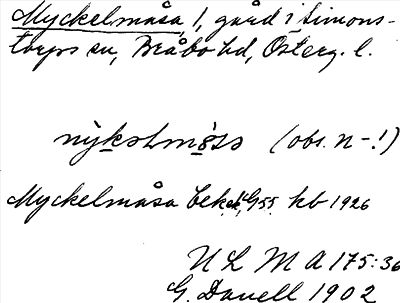 Myckelmåsa, 1, gård i Simons-
torps sn, Bråbo hd, Österg. l.
(obs. n-!)
Myckelmåsa bek. G55 kb 1926
ULMA 175:36
G. Danell 1902